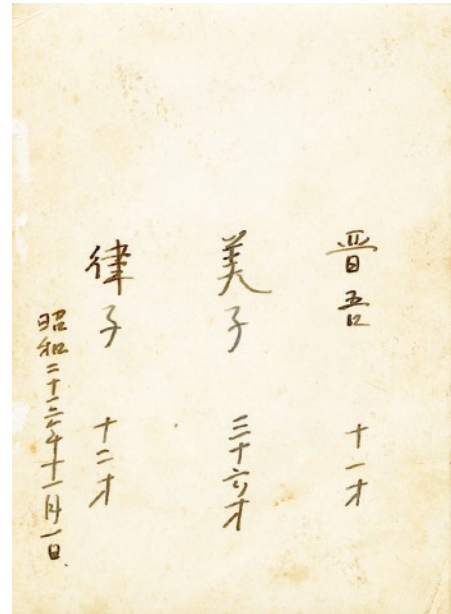 晋吾 十一才
美子 三十六才
律子 十二才
昭和二十六年十一月一日